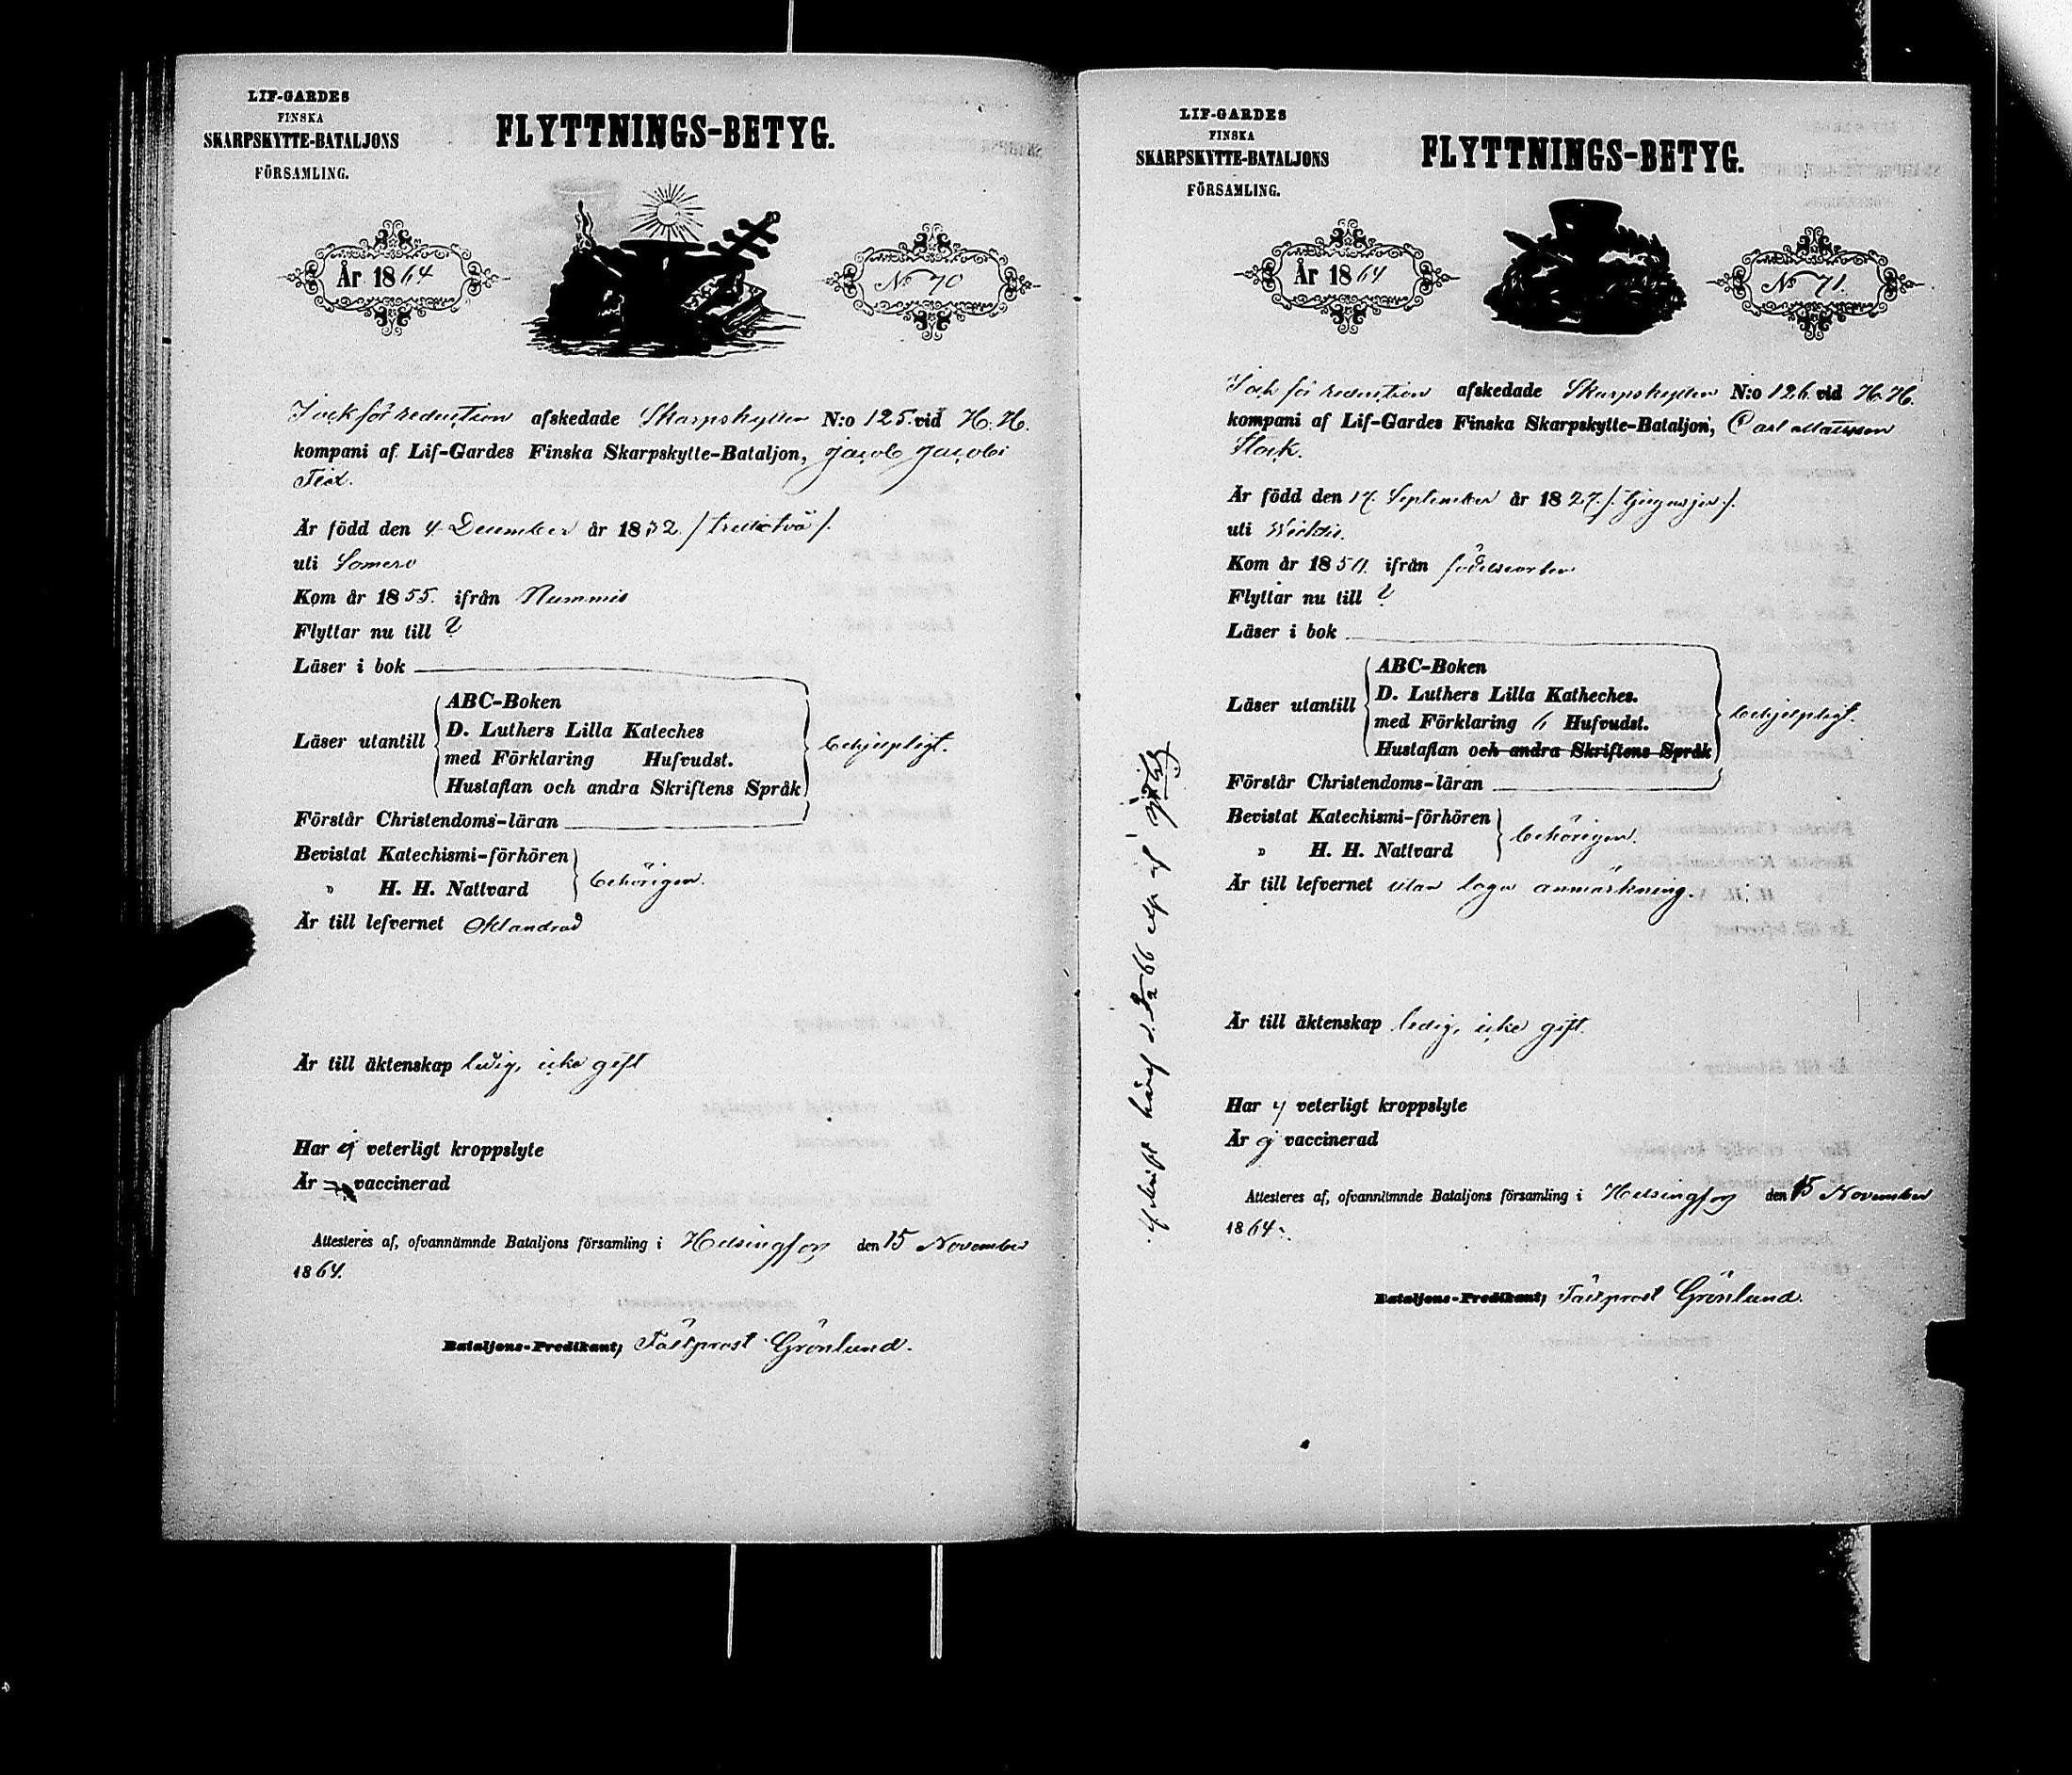 LIF-GARDES
FINSKA
SKARPSKYTTE-BATALJONS
FÖRSAMLING.
FLYTTNINGS-BETYG.
År 1864
No 70
för reduction afskedade Skarpskytten N:o 125. vid H. H.
kompani af Lif-Gardes Finska Skarpskytte-Bataljon, Jacob Jacobi
Är född den 4 December år 1832 /trettiotvå/.
uti Somero
Kom år 1855. ifrån Nummis
Flyttar nu till ?
Läser i bok
Läser utantill
ABC-Boken
D. Luthers Lilla Kateches
med Förklaring Hufvudst.
Hustaflan och andra Skriftens Språk
behjelpligt.
Förstår Christendoms-läran
Bevistat Katechismi-förhören
" H. H. Nattvard
behörigen.
Är till lefvernet oklandrad
Är till äktenskap ledig, icke gift
Har ej veterligt kroppslyte
Är vaccinerad
Attesteres af, ofvannämnde Bataljons församling i Helsingfors den 15 November
1864.
Bataljons-Predikant, Fältprost Grönlund.
LIF-GARDES
FINSKA
SKARPSKYTTE-BATALJONS
FÖRSAMLING.
FLYTTNINGS-BETYG.
År 1864
No 71.
för reduction afskedade Skarpskytten N:o 126. vid H. H.
kompani af Lif-Gardes Finska Skarpskytte-Bataljon, Carl Mattsson
Stock.
Är född den 17. September år 1827 /tjugusju/.
uti Wichtis.
Kom år 185 ifrån födelseorten
Flyttar nu till ?
Läser i bok
Läser utantill
ABC-Boken
D. Luthers Lilla Katheches.
med Förklaring 6 Hufvudst.
Hustaflan och andra Skriftens Språk
behjelpligt.
Förstår Christendoms-läran
Bevistat Katechismi-förhören
" H. H. Nattvard
behörigen.
Är till lefvernet utan laga anmärkning.
Är till äktenskap ledig, icke gift.
Har ej veterligt kroppslyte
Är ej vaccinerad
Attesteres af, ofvannämnde Bataljons församling i Helsingfors den 15 November
1864.
Bataljons-Predikant, Fältprost Grönlund.